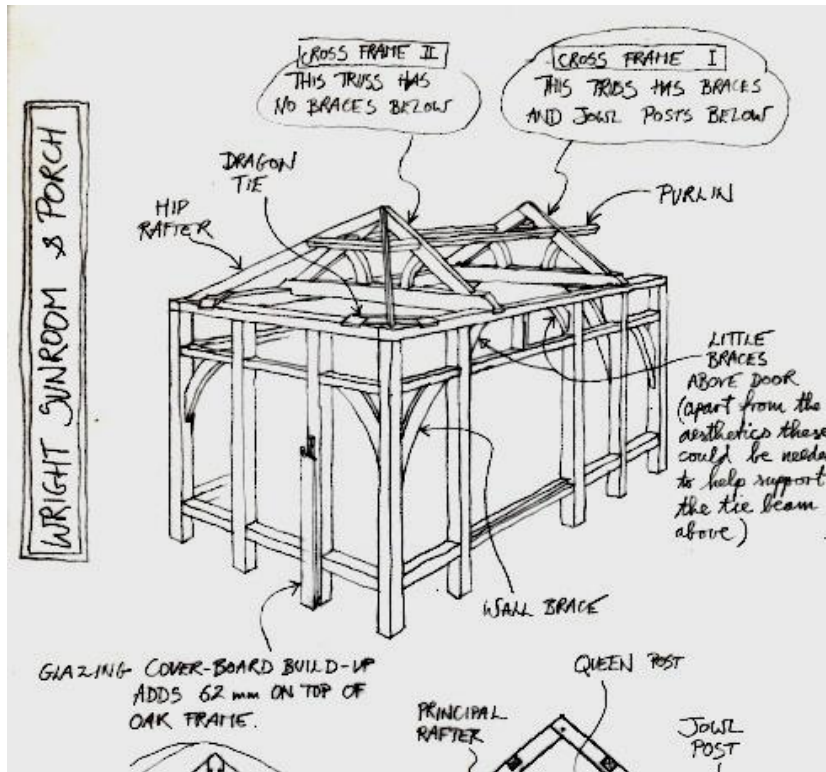 CROSS FRAME II
THIS TRUSS HAS
NO BRACES BELOW
CROSS FRAME I
THIS TRUSS HAS BRACES
AND JOWL POSTS BELOW
WRIGHT SUNROOM & PORCH
DRAGON
TIE
HIP
RAFTER
PURLIN
LITTLE
BRACES
ABOVE DOOR
(apart from the
aesthetics these
could be needed
to help support
the tie beam
above)
WALL BRACE
GLAZING COVER-BOARD BUILD-UP
ADDS 62 mm ON TOP OF
OAK FRAME.
QUEEN POST
PRINCIPAL
RAFTER
JOWL
POST